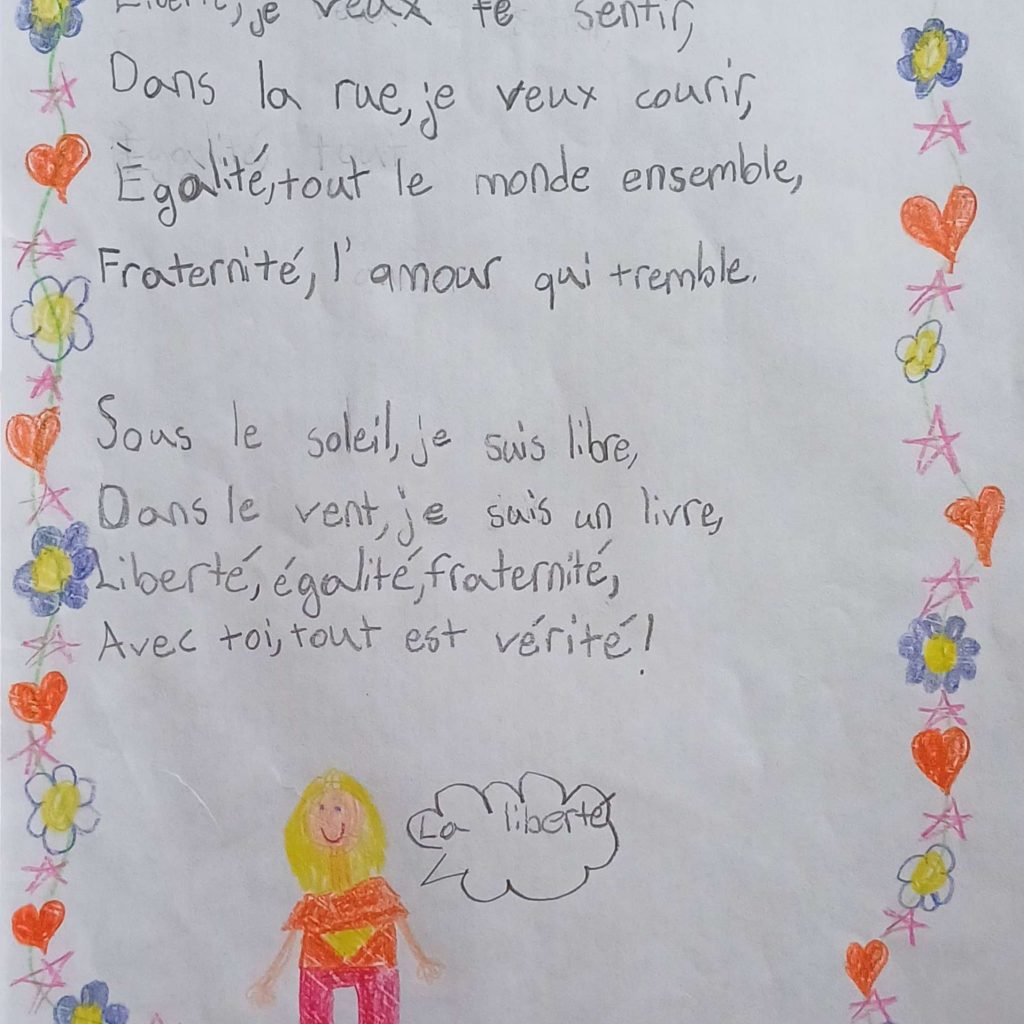 Liberté, je veux te sentir,
Dans la rue, je veux courir,
Ègalité, tout le monde ensemble,
Fraternité, l'amour qui tremble.
Sous le soleil, je suis libre,
Dans le vent, je suis un livre,
Liberté, égalité, fraternité,
Avec toi, tout est vérité!
La liberté